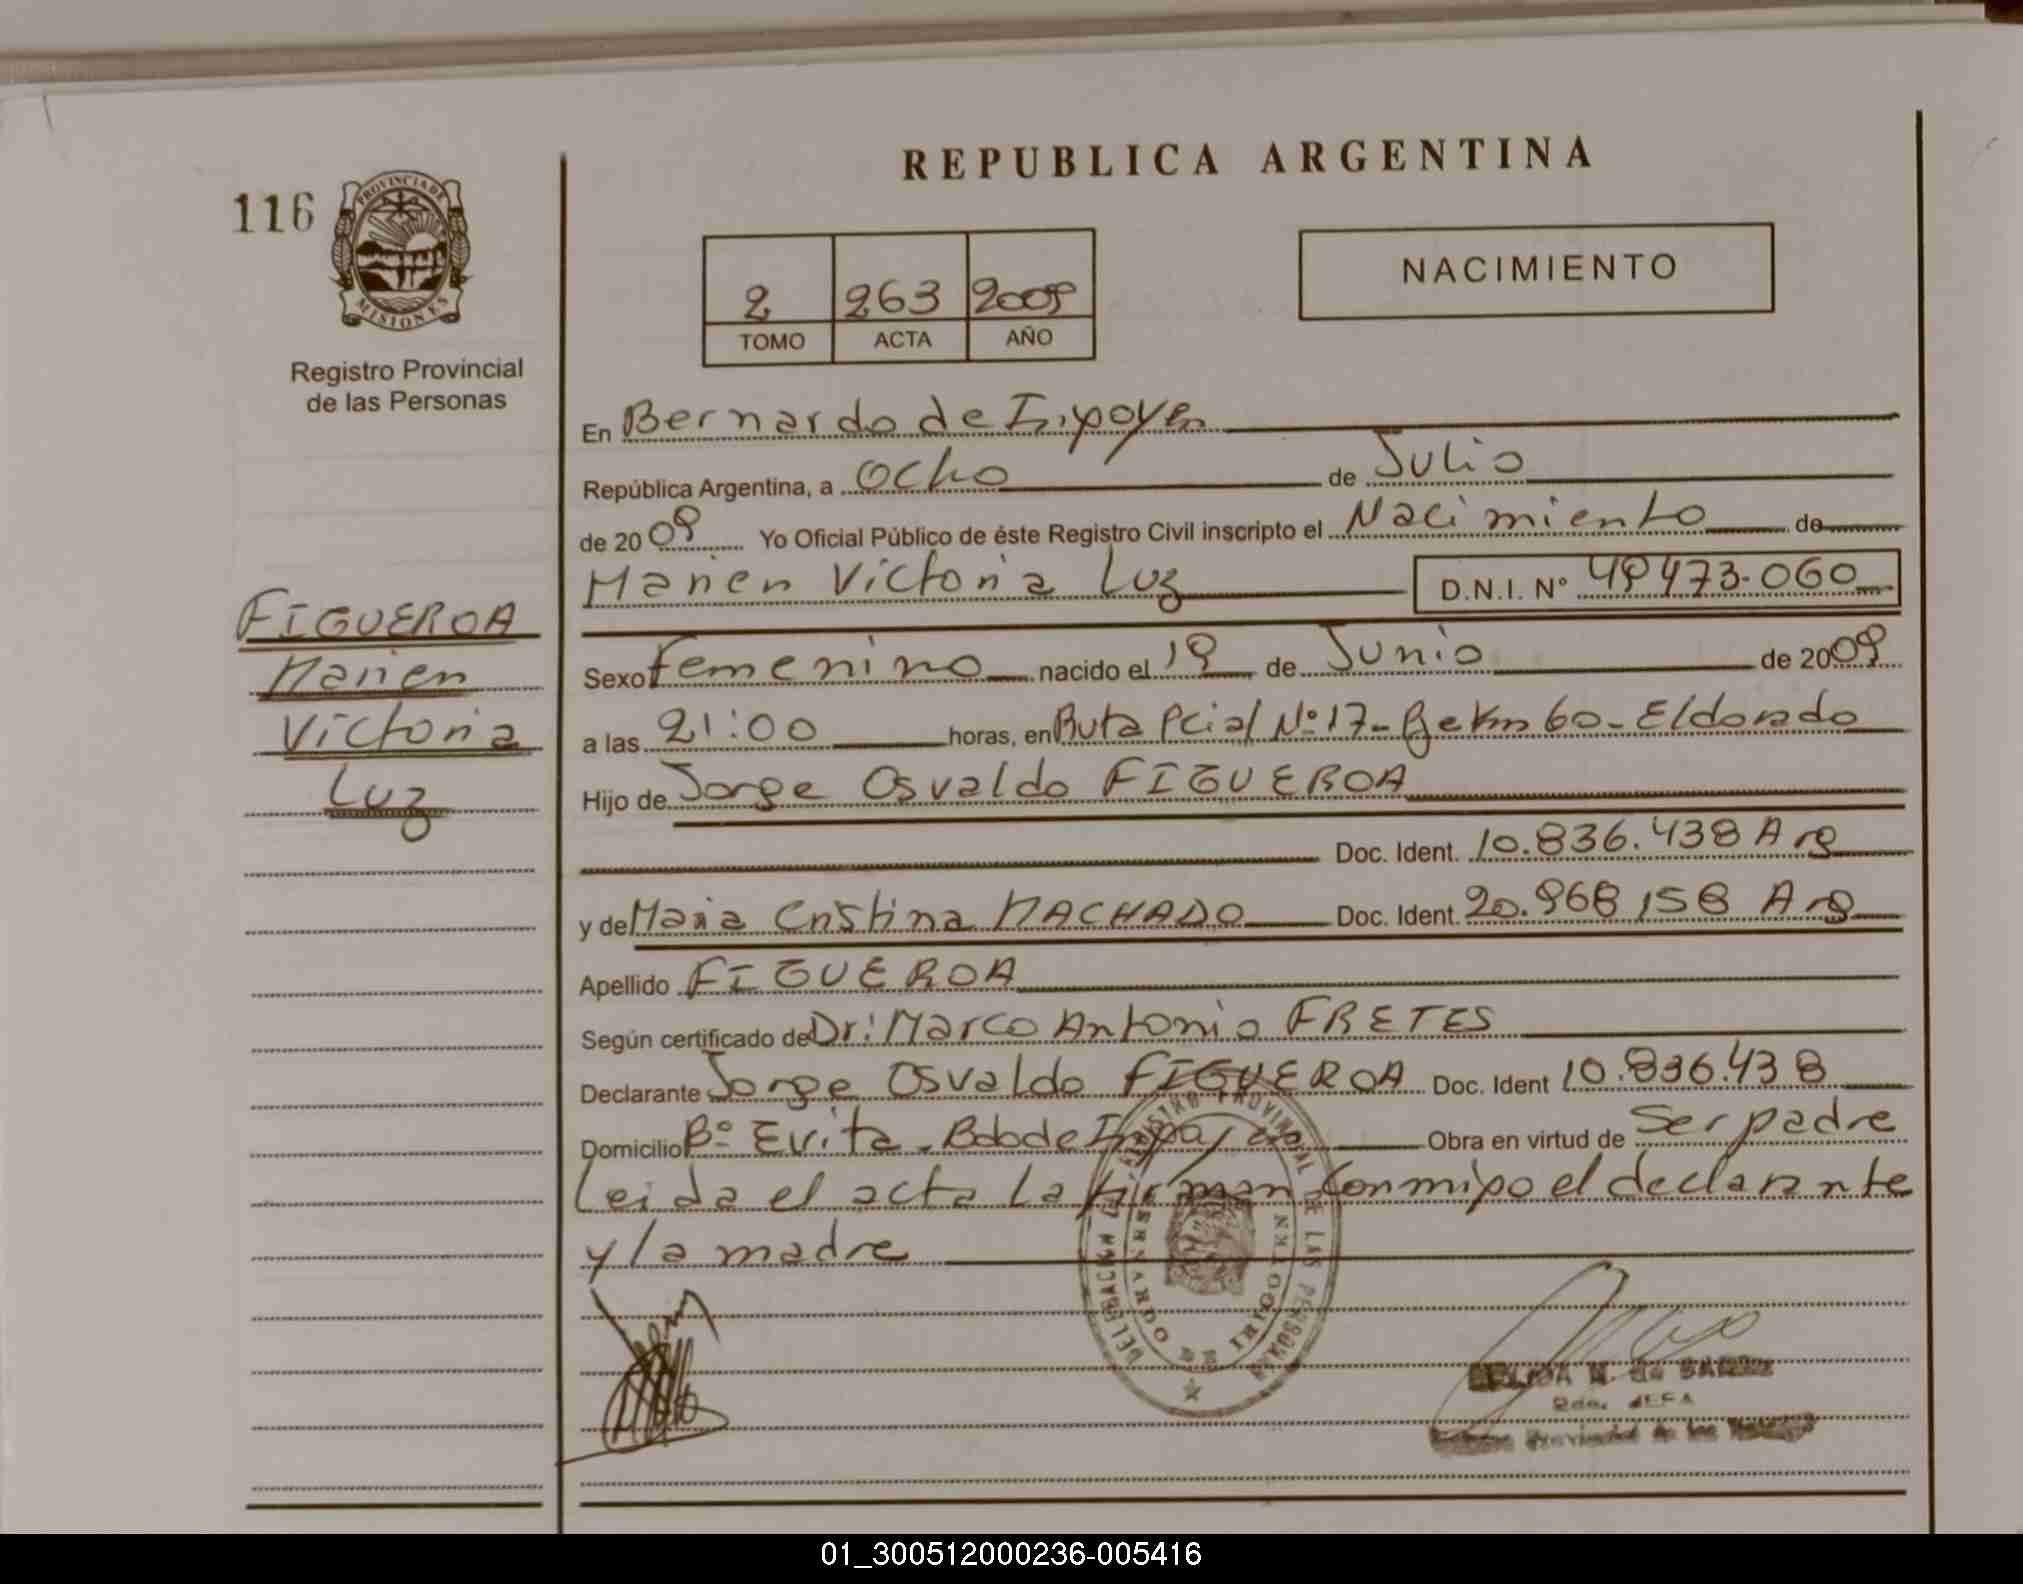 REPUBLICA ARGENTINA
116
PROVINCIA DE
MISIONES
Registro Provincial
de las Personas
2 263 2009
TOMO ACTA AÑO
NACIMIENTO
En Bernardo de Irigoyen
República Argentina, a Ocho de Julio
de 2009 Yo Oficial Público de éste Registro Civil inscripto el Nacimiento de
Marien Victoria Luz D.N.I. Nº 49473.060
FIGUEROA
Marien
Victoria
Luz
Sexo Femenino nacido el 19 de Junio de 2009
a las 21:00 horas, en Ruta Pcial Nº 17 - Km 60 - Eldorado
Hijo de Jorge Osvaldo FIGUEROA
Doc. Ident. 10.836.438 Arg
y de Maria Cristina MACHADO Doc. Ident. 20.968 158 Arg
Apellido FIGUEROA
Según certificado de Dr: Marco Antonio FRETES
Declarante Jorge Osvaldo FIGUEROA Doc. Ident 10.836.438
Domicilio Bº Evita - Bdo de Irigoyen Obra en virtud de Ser padre
Leida el acta la firman conmigo el declarante
y la madre
REGISTRO PROVINCIAL DE LAS PERSONAS
BERNARDO DE IRIGOYEN
01_300512000236-005416